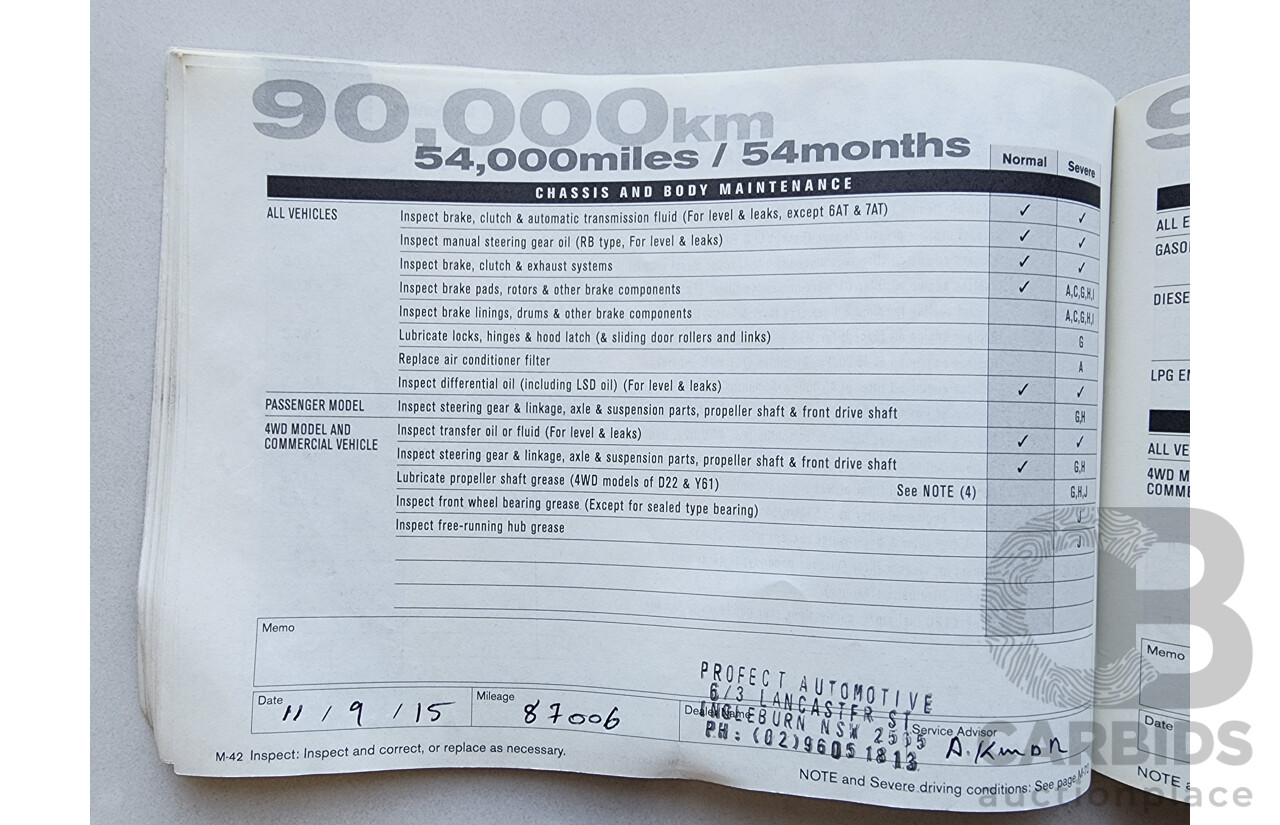 90,000km
54,000miles / 54months
Normal Severe
CHASSIS AND BODY MAINTENANCE
ALL VEHICLES Inspect brake, clutch & automatic transmission fluid (For level & leaks, except 6AT & 7AT) ✓ ✓
Inspect manual steering gear oil (RB type, For level & leaks) ✓ ✓
Inspect brake, clutch & exhaust systems ✓ ✓
Inspect brake pads, rotors & other brake components ✓ A,C,G,H,I
Inspect brake linings, drums & other brake components A,C,G,H,I
Lubricate locks, hinges & hood latch (& sliding door rollers and links) G
Replace air conditioner filter A
Inspect differential oil (including LSD oil) (For level & leaks) ✓ ✓
PASSENGER MODEL Inspect steering gear & linkage, axle & suspension parts, propeller shaft & front drive shaft G,H
4WD MODEL AND COMMERCIAL VEHICLE Inspect transfer oil or fluid (For level & leaks) ✓ ✓
Inspect steering gear & linkage, axle & suspension parts, propeller shaft & front drive shaft ✓ G,H
Lubricate propeller shaft grease (4WD models of D22 & Y61) See NOTE (4) G,H,J
Inspect front wheel bearing grease (Except for sealed type bearing) J
Inspect free-running hub grease J
Memo
PROFECT AUTOMOTIVE
6/3 LANCASTER ST
INGLEBURN NSW 2565
PH: (02)9605 1813
Date 11 / 9 / 15
Mileage 87006
Dealer Name
Service Advisor
M-42 Inspect: Inspect and correct, or replace as necessary.
NOTE and Severe driving conditions: See page M-70
9
ALL E
GASO
DIESE
LPG EN
ALL VE
4WD M
COMME
Memo
Date
NOTE a
CB
CARBIDS
auctionplace